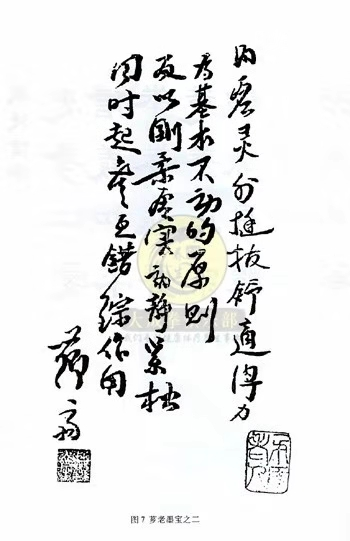 内虚灵外挺拔舒适得力
为基本不动的原则
更以刚柔虚实动静紧松
同时起参互错综作用
芗斋
图7 芗老墨宝之二